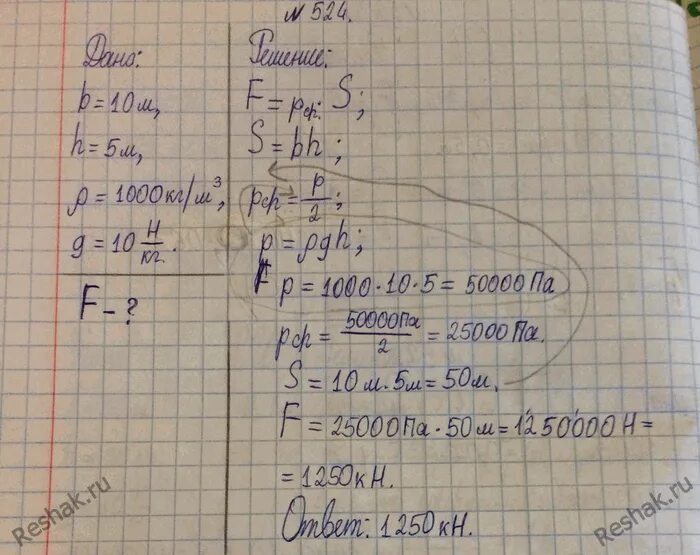 № 524.
Дано:
b = 10 м,
h = 5 м,
ρ = 1000 кг/м³,
g = 10 Н/кг.
F - ?
Решение:
F = pср. S;
S = bh;
pср = p/2;
p = ρgh;
p = 1000 · 10 · 5 = 50000 Па
pср = 50000 Па/2 = 25000 Па.
S = 10 м · 5 м = 50 м,
F = 25000 Па · 50 м = 1250000 Н =
= 1250 кН.
Ответ: 1250 кН.
Reshak.ru
Reshak.ru
Reshak.ru